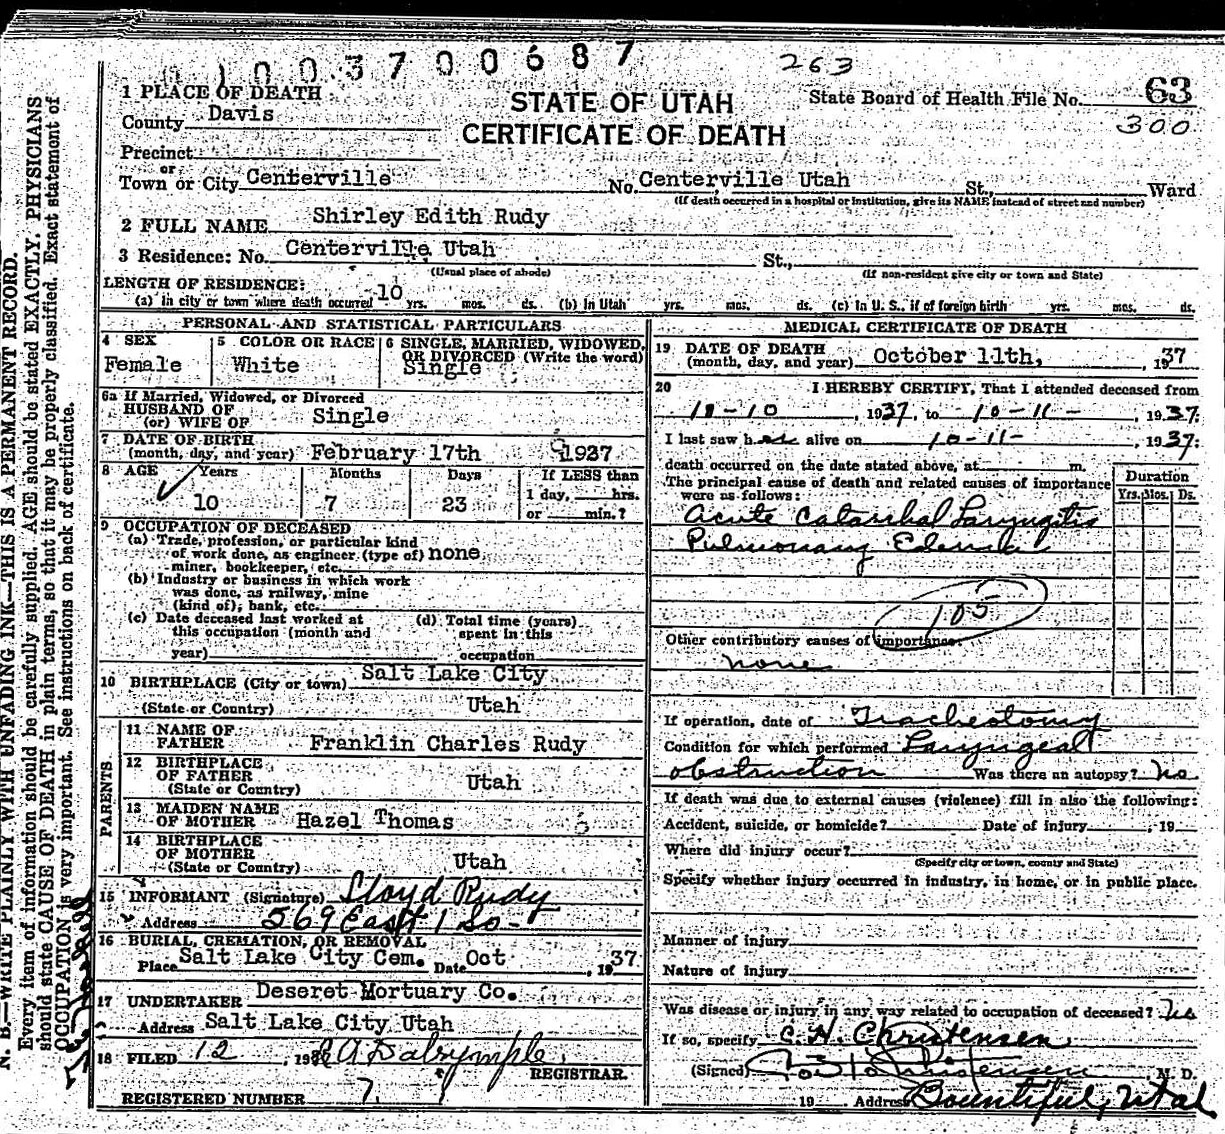 0 1 0 0 3 7 0 0 6 8 7
263
1 PLACE OF DEATH
STATE OF UTAH
CERTIFICATE OF DEATH
State Board of Health File No. 63
300
County Davis
Precinct
or
Town or City Centerville No. Centerville Utah St., Ward
(If death occurred in a hospital or institution, give its NAME instead of street and number)
2 FULL NAME Shirley Edith Rudy
3 Residence: No. Centerville Utah St.,
(Usual place of abode) (If non-resident give city or town and State)
LENGTH OF RESIDENCE:
(a) in city or town where death occurred 10 yrs. mos. ds. (b) In Utah yrs. mos. ds. (c) In U. S., if of foreign birth yrs. mos. ds.
PERSONAL AND STATISTICAL PARTICULARS
4 SEX
Female
5 COLOR OR RACE
White
6 SINGLE, MARRIED, WIDOWED,
OR DIVORCED (Write the word)
Single
6a If Married, Widowed, or Divorced
HUSBAND OF
(or) WIFE OF Single
7 DATE OF BIRTH
(month, day, and year) February 17th 1927
8 AGE Years Months Days If LESS than
10 7 23 1 day, hrs.
or min.?
9 OCCUPATION OF DECEASED
(a) Trade, profession, or particular kind
of work done, as engineer (type of) none
miner, bookkeeper, etc.
(b) Industry or business in which work
was done, as railway, mine
(kind of), bank, etc.
(c) Date deceased last worked at
this occupation (month and
year)
(d) Total time (years)
spent in this
occupation
10 BIRTHPLACE (City or town) Salt Lake City
(State or Country) Utah
PARENTS
11 NAME OF
FATHER Franklin Charles Rudy
12 BIRTHPLACE
OF FATHER
(State or Country) Utah
13 MAIDEN NAME
OF MOTHER Hazel Thomas
14 BIRTHPLACE
OF MOTHER
(State or Country) Utah
15 INFORMANT (Signature) Lloyd Rudy
Address 569 East 1 So-
16 BURIAL, CREMATION, OR REMOVAL
Place Salt Lake City Cem. Date Oct , 1937
17 UNDERTAKER Deseret Mortuary Co.
Address Salt Lake City Utah
18 FILED 12 , 19 A Dalrymple
REGISTRAR.
REGISTERED NUMBER 7
MEDICAL CERTIFICATE OF DEATH
19 DATE OF DEATH
(month, day, and year) October 11th, , 1937
20 I HEREBY CERTIFY, That I attended deceased from
10-10 , 1937, to 10-11- , 1937.
I last saw her alive on 10-11- , 1937.
death occurred on the date stated above, at m.
The principal cause of death and related causes of importance
were as follows:
Duration
Yrs. Mos. Ds.
Acute Catarrhal Laryngitis
Pulmonary Edema
105
Other contributory causes of importance:
none
If operation, date of Tracheotomy
Condition for which performed Laryngeal
obstruction Was there an autopsy? No
If death was due to external causes (violence) fill in also the following:
Accident, suicide, or homicide? Date of injury , 19
Where did injury occur?
(Specify city or town, county and State)
Specify whether injury occurred in industry, in home, or in public place.
Manner of injury
Nature of injury
Was disease or injury in any way related to occupation of deceased? No
If so, specify C. H. Christensen
(Signed) Christensen M. D.
19 Address Bountiful, Utah
N. B.—WRITE PLAINLY WITH UNFADING INK—THIS IS A PERMANENT RECORD.
Every item of information should be carefully supplied. AGE should be stated EXACTLY. PHYSICIANS
should state CAUSE OF DEATH in plain terms, so that it may be properly classified. Exact statement of
OCCUPATION is very important. See instructions on back of certificate.